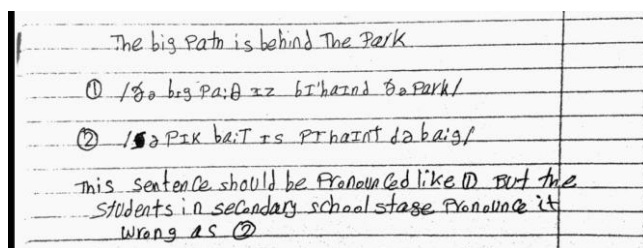 The big Path is behind The Park
① /ðə bɪg pa:θ ɪz bɪ'haɪnd ðə park/
② /ə PIK ba:T IS PThaInT də baig/
This sentence should be Pronounced like ① But the
students in secondary school stage Pronounce it
wrong as ②